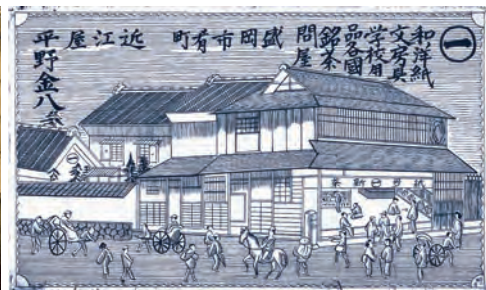 ㊀
和洋紙
文房具
学校用
品各國
銘茶
問屋
盛岡市肴町
近江屋
平野金八